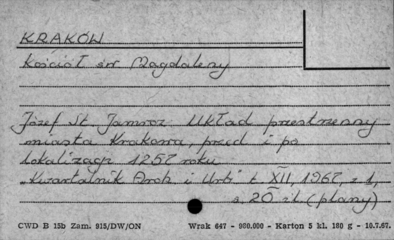 KRAKÓW
Kościół św Magdaleny
Józef St. Jamroz Układ przestrzenny
miasta Krakowa, przed i po
lokalizacji 1257 roku
„Kwartalnik Arch i Urb" t XII, 1967, z 1,
s. 20 il (plany)
CWD B 15b Zam. 915/DW/ON Wrak 647 - 900.000 - Karton 5 kl. 180 g - 10.7.67.